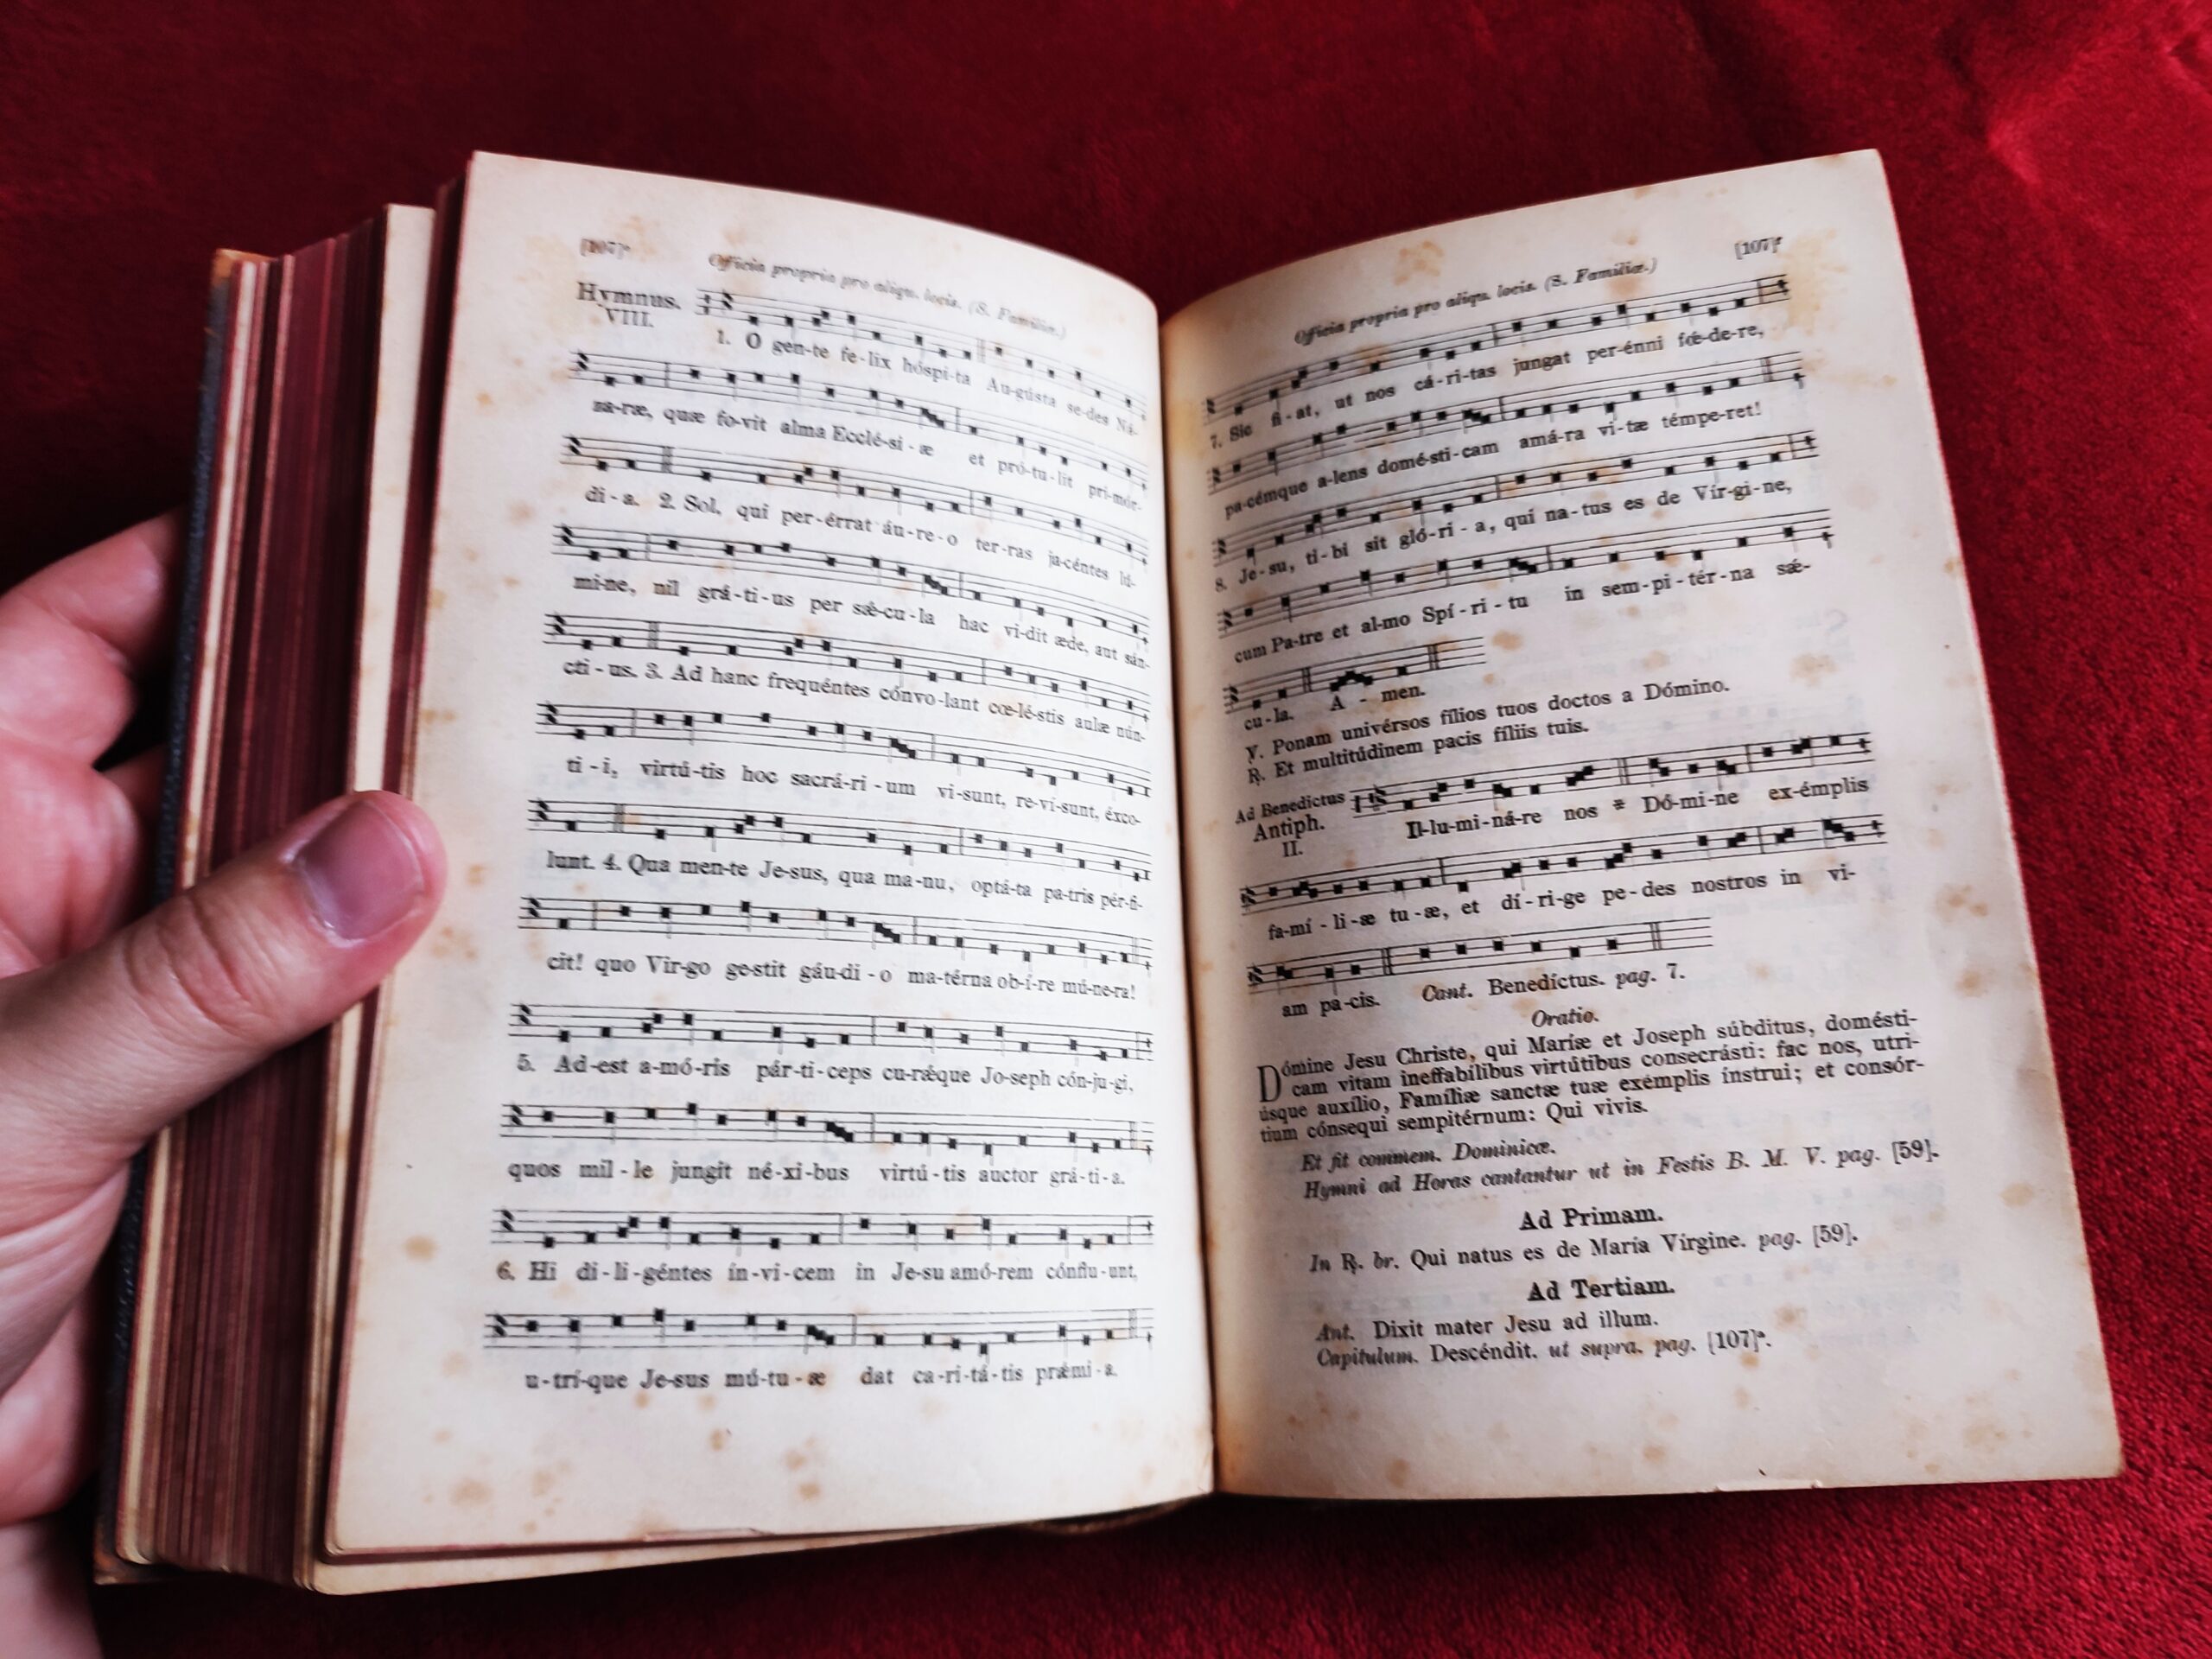 Officia propria pro aliqu. locis. (S. Familiæ.)
Hymnus.
VIII.
1. O gen-te fe-lix hóspi-ta Au-gústa se-des Ná-
sa-ræ, quæ fo-vit alma Ecclé-si-æ et pró-tu-lit pri-mór-
di-a. 2. Sol, qui per-érrat áu-re-o ter-ras ja-céntes lú-
mi-ne, nil grá-ti-us per sǽ-cu-la hac vi-dit æde, aut sán-
cti-us. 3. Ad hanc frequéntes cónvo-lant cœ-lé-stis aulæ nún-
ti-i, virtú-tis hoc sacrá-ri-um vi-sunt, re-ví-sunt, éxco-
lunt. 4. Qua men-te Je-sus, qua ma-nu, optá-ta pa-tris pér-fi-
cit! quo Vir-go ge-stit gáu-di-o ma-térna ob-í-re mú-ne-ra!
5. Ad-est a-mó-ris pár-ti-ceps cu-rǽque Jo-seph cón-ju-gi,
quos mil-le jungit né-xi-bus virtú-tis auctor grá-ti-a.
6. Hi di-li-géntes ín-vi-cem in Je-su amó-rem cónflu-unt,
u-trí-que Je-sus mú-tu-æ dat ca-ri-tá-tis prǽmi-a.
Officia propria pro aliqu. locis. (S. Familiæ.)
7. Sic fi-at, ut nos cá-ri-tas jungat per-énni fœ́-de-re,
pa-cémque a-lens domé-sti-cam amá-ra vi-tæ témpe-ret!
8. Je-su, ti-bi sit gló-ri-a, qui na-tus es de Vír-gi-ne,
cum Pa-tre et al-mo Spí-ri-tu in sem-pi-tér-na sǽ-
cu-la. A - men.
℣. Ponam univérsos fílios tuos doctos a Dómino.
℟. Et multitúdinem pacis fíliis tuis.
Ad Benedictus
Antiph.
II.
Il-lu-mi-ná-re nos * Dó-mi-ne ex-émplis
fa-mí-li-æ tu-æ, et dí-ri-ge pe-des nostros in vi-
am pa-cis. Cant. Benedíctus. pag. 7.
Oratio.
Dómine Jesu Christe, qui Maríæ et Joseph súbditus, domésti-
cam vitam ineffabílibus virtútibus consecrásti: fac nos, utri-
úsque auxílio, Famíliæ sanctæ tuæ exémplis ínstrui; et consór-
tium cónsequi sempitérnum: Qui vivis.
Et fit commem. Dominicæ.
Hymni ad Horas cantantur ut in Festis B. M. V. pag. [59].
Ad Primam.
In ℟. br. Qui natus es de María Vírgine. pag. [59].
Ad Tertiam.
Ant. Dixit mater Jesu ad illum.
Capitulum. Descéndit. ut supra. pag. [107]ᵃ.